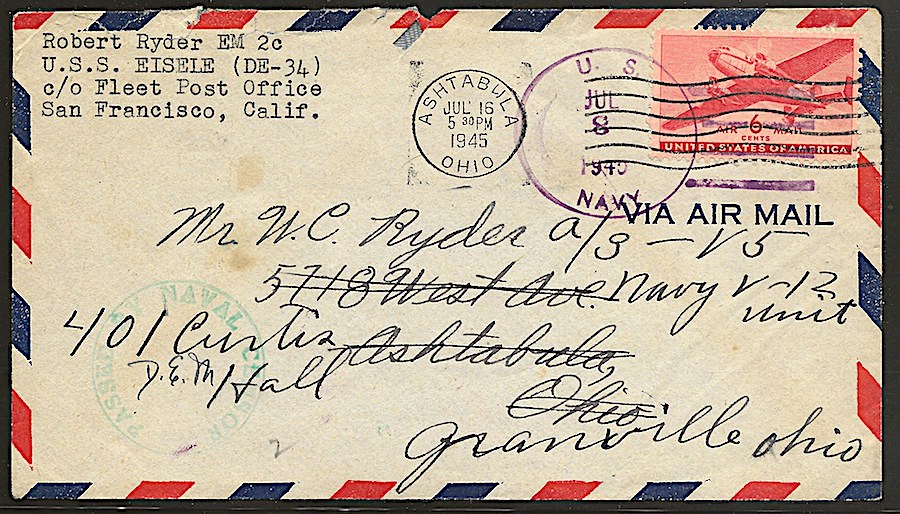 Robert Ryder EM 2c
U.S.S. EISELE (DE-34)
c/o Fleet Post Office
San Francisco, Calif.
ASHTABULA
JUL 16
5 30 PM
1945
OHIO
U. S.
JUL
8
1945
NAVY
AIR 6 MAIL
CENTS
UNITED STATES OF AMERICA
VIA AIR MAIL
Mr. W. C. Ryder a/s - V5
5718 West Ave. Navy V-12
unit
401 Curtis Ashtabula,
D.E.M Hall
Ohio
Granville Ohio
PASSED BY NAVAL CENSOR